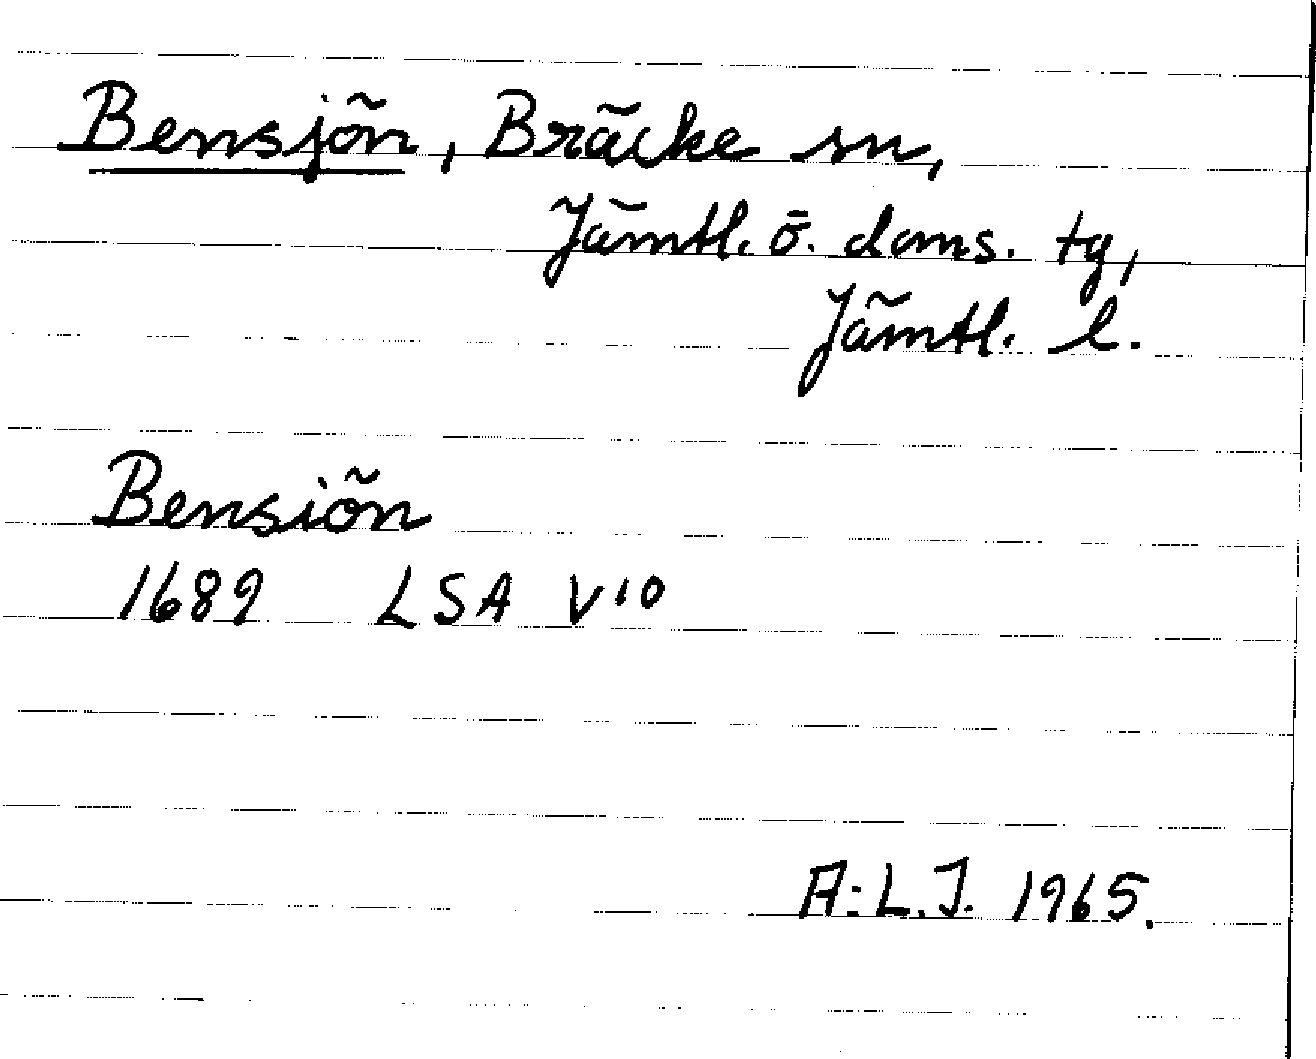 Bensjön, Bräcke sn,
Jämtl. ö. doms. tg,
Jämtl. l.
Bensiön
1689 LSA V10
A:L.J. 1965.